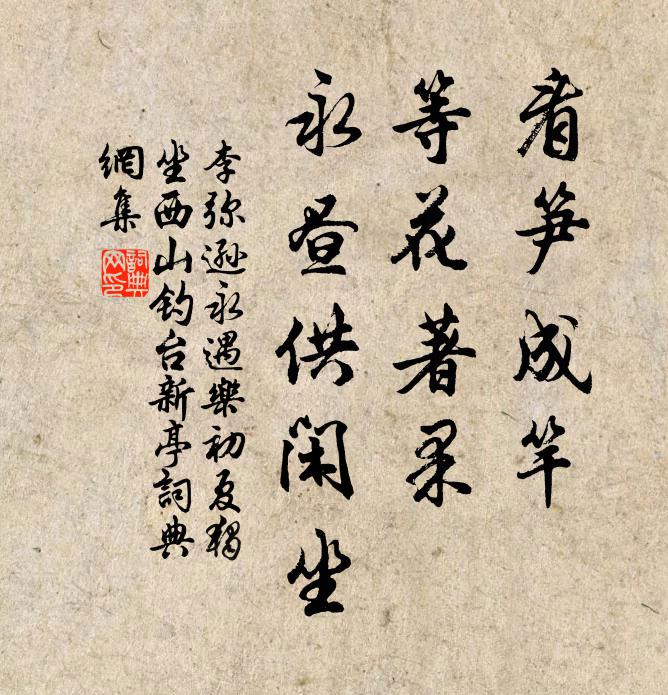 看笋成竿
等花著果
永昼供闲坐
李弥逊永遇樂初夏獨
坐西山钓台新亭詞典
網集
詞典
网印